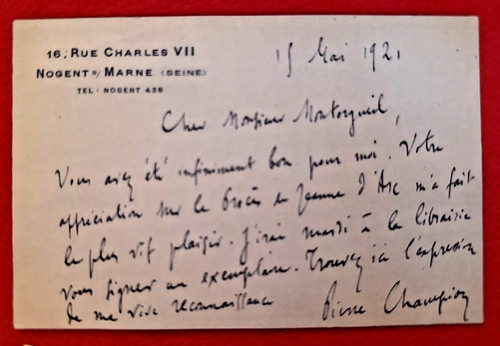 16, RUE CHARLES VII
NOGENT S/ MARNE (SEINE)
TEL : NOGENT 426
15 Mai 1921
Cher Monsieur Montorgueil,
Vous avez été infiniment bon pour moi. Votre
appréciation sur le Procès de Jeanne d'Arc m'a fait
le plus vif plaisir. J'irai mardi à la librairie
vous signer un exemplaire. Trouvez ici l'expression
de ma vive reconnaissance
Pierre Champion